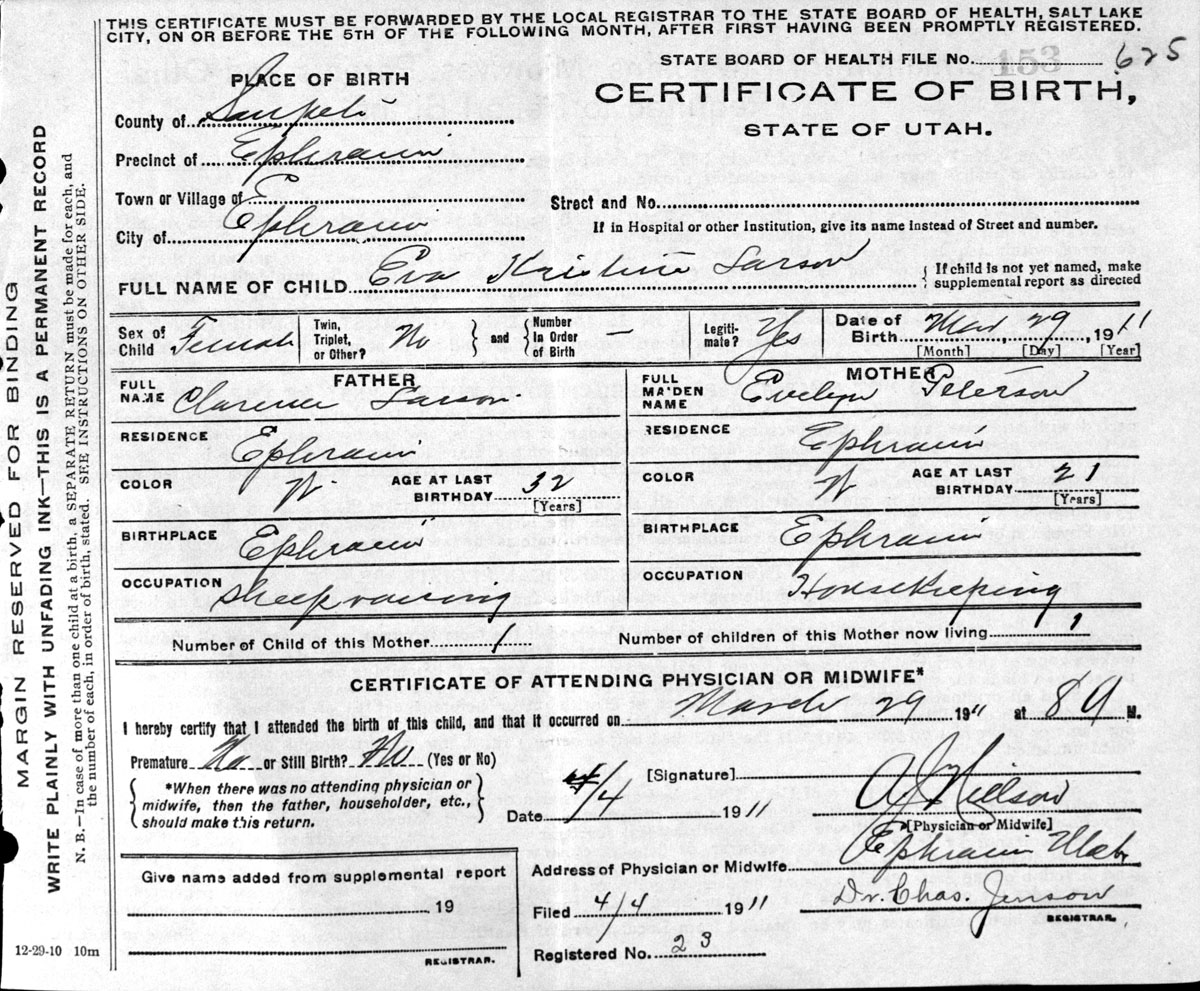 THIS CERTIFICATE MUST BE FORWARDED BY THE LOCAL REGISTRAR TO THE STATE BOARD OF HEALTH, SALT LAKE
CITY, ON OR BEFORE THE 5TH OF THE FOLLOWING MONTH, AFTER FIRST HAVING BEEN PROMPTLY REGISTERED.
MARGIN RESERVED FOR BINDING
WRITE PLAINLY WITH UNFADING INK—THIS IS A PERMANENT RECORD
N. B.—In case of more than one child at a birth, a SEPARATE RETURN must be made for each, and
the number of each, in order of birth, stated. SEE INSTRUCTIONS ON OTHER SIDE.
STATE BOARD OF HEALTH FILE No. 153 625
PLACE OF BIRTH
CERTIFICATE OF BIRTH,
STATE OF UTAH.
County of Sanpete
Precinct of Ephraim
Town or Village of E
City of Ephraim
Street and No.
If in Hospital or other Institution, give its name instead of Street and number.
FULL NAME OF CHILD Eva Kristine Larson
{ If child is not yet named, make
supplemental report as directed
Sex of Child Female
Twin, Triplet, or Other? No } and { Number In Order of Birth —
Legitimate? Yes
Date of Birth Mar 29, 1911
[Month] [Day] [Year]
FATHER
FULL NAME Clarence Larson
RESIDENCE Ephraim
COLOR W
AGE AT LAST BIRTHDAY 32
[Years]
BIRTHPLACE Ephraim
OCCUPATION Sheepraising
MOTHER
FULL MAIDEN NAME Evelyn Peterson
RESIDENCE Ephraim
COLOR W
AGE AT LAST BIRTHDAY 21
[Years]
BIRTHPLACE Ephraim
OCCUPATION Housekeeping
Number of Child of this Mother 1
Number of children of this Mother now living 1
CERTIFICATE OF ATTENDING PHYSICIAN OR MIDWIFE*
I hereby certify that I attended the birth of this child, and that it occurred on March 29 1911 at 8 A M.
Premature No or Still Birth? No (Yes or No)
{ *When there was no attending physician or
midwife, then the father, householder, etc.,
should make this return. }
[Signature] A J Nielson
Date 4/4 1911
[Physician or Midwife]
Address of Physician or Midwife Ephraim Utah
Filed 4/4 1911 Dr. Chas. Jenson
REGISTRAR.
Registered No. 23
Give name added from supplemental report
19
REGISTRAR.
12-29-10 10m